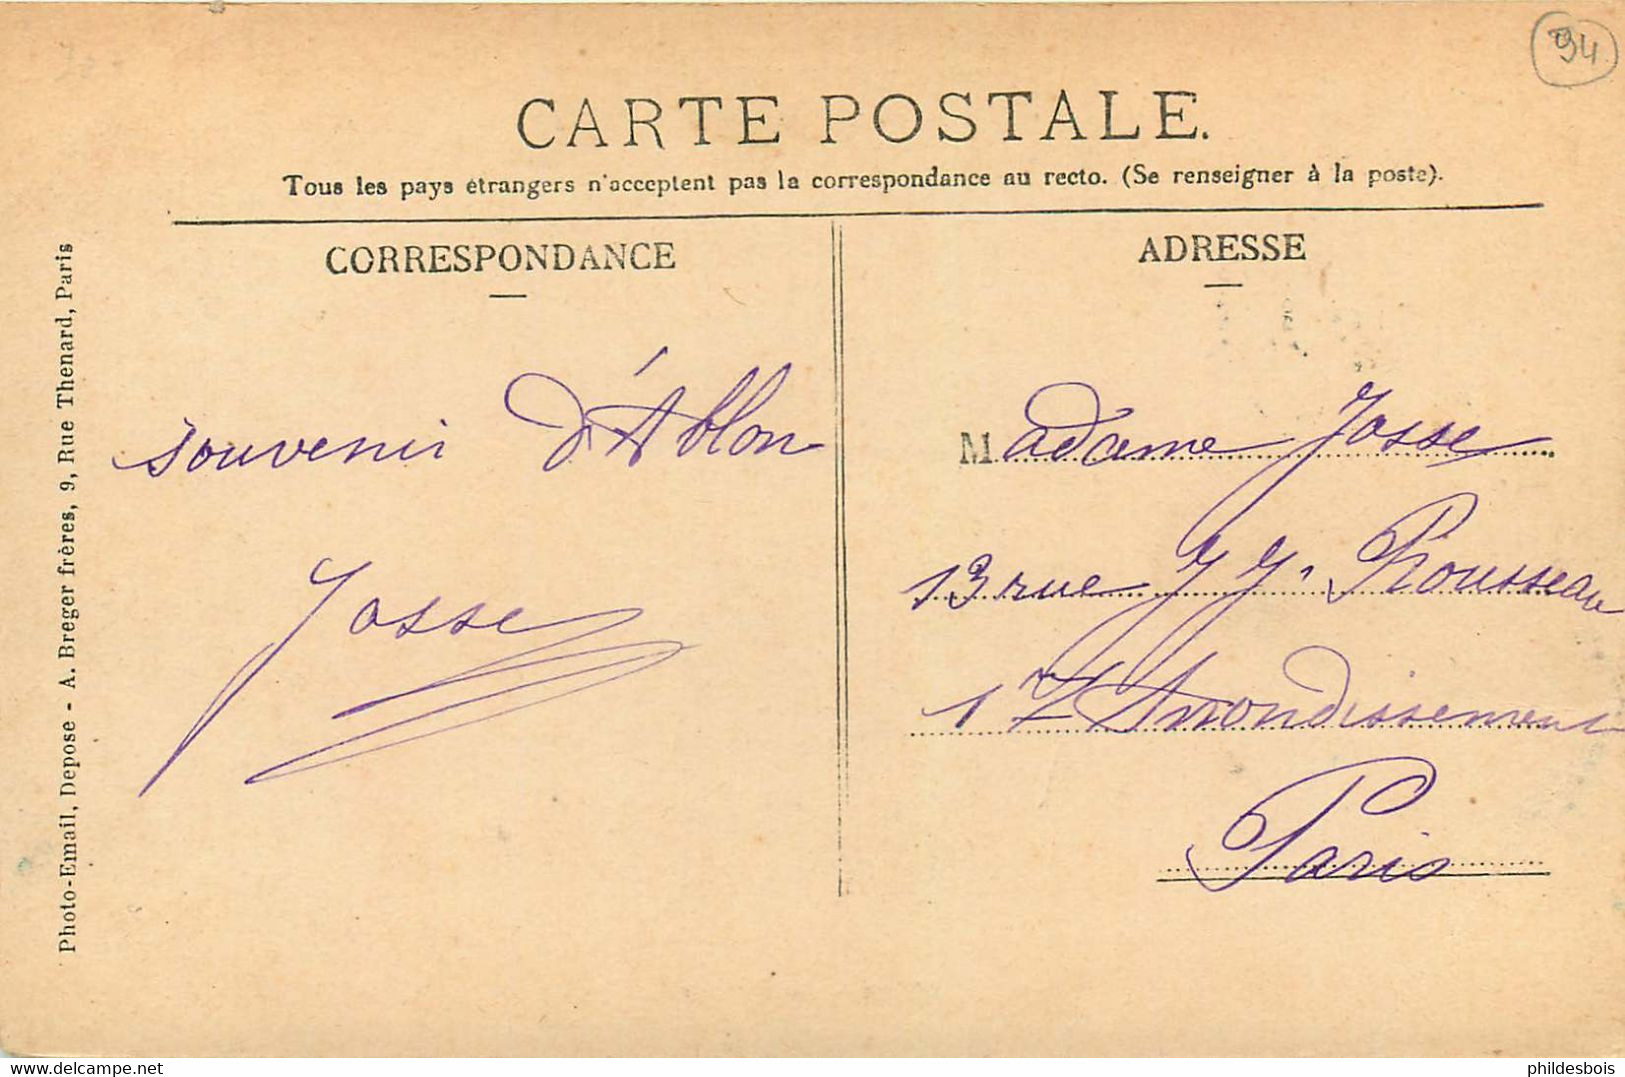 94
CARTE POSTALE.
Tous les pays étrangers n'acceptent pas la correspondance au recto. (Se renseigner à la poste).
CORRESPONDANCE
souvenir d'Ablon
Josse
ADRESSE
Madame Josse
13 rue J J. Rousseau
1 Arrondissement
Paris
Photo-Email, Depose - A. Breger frères, 9, Rue Thenard, Paris
www.delcampe.net
phildesbois